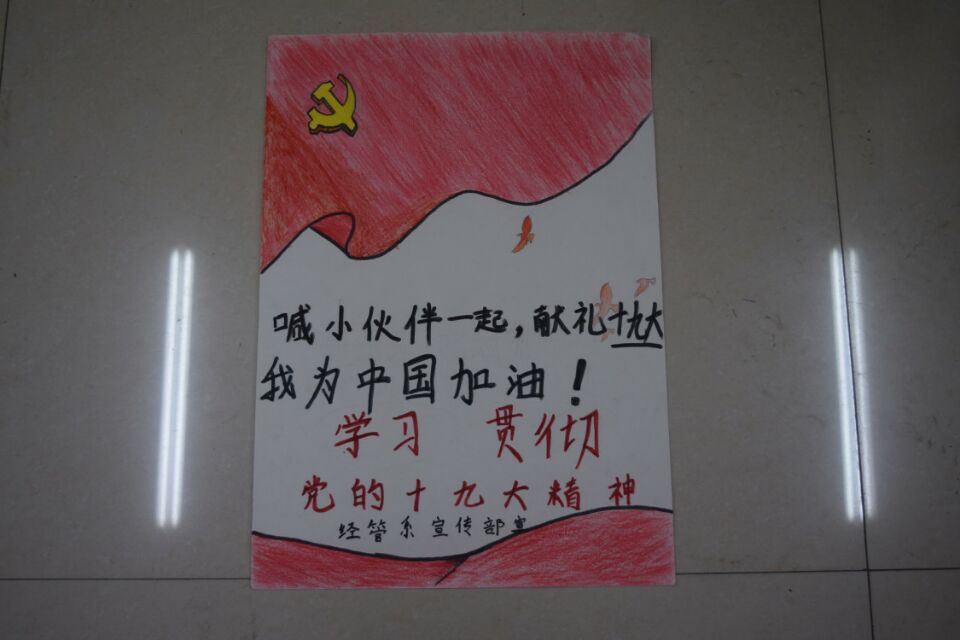 喊小伙伴一起,献礼十九大
我为中国加油!
学习 贯彻
党的十九大精神
经管系宣传部宣